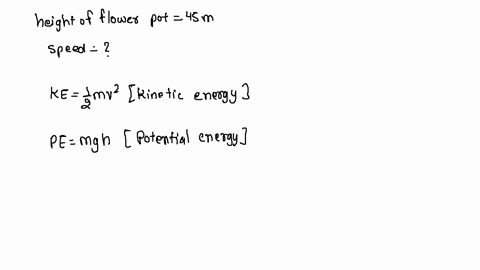 height of flower pot = 45m
speed = ?
KE = 1/2 mv² [kinetic energy]
PE = mgh [Potential energy]